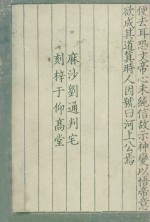 使去耳恐文帝心未純信故示神變以悟帝意
欲成其道眞時人因號曰河上公焉
麻沙劉通判宅
刻梓于仰高堂